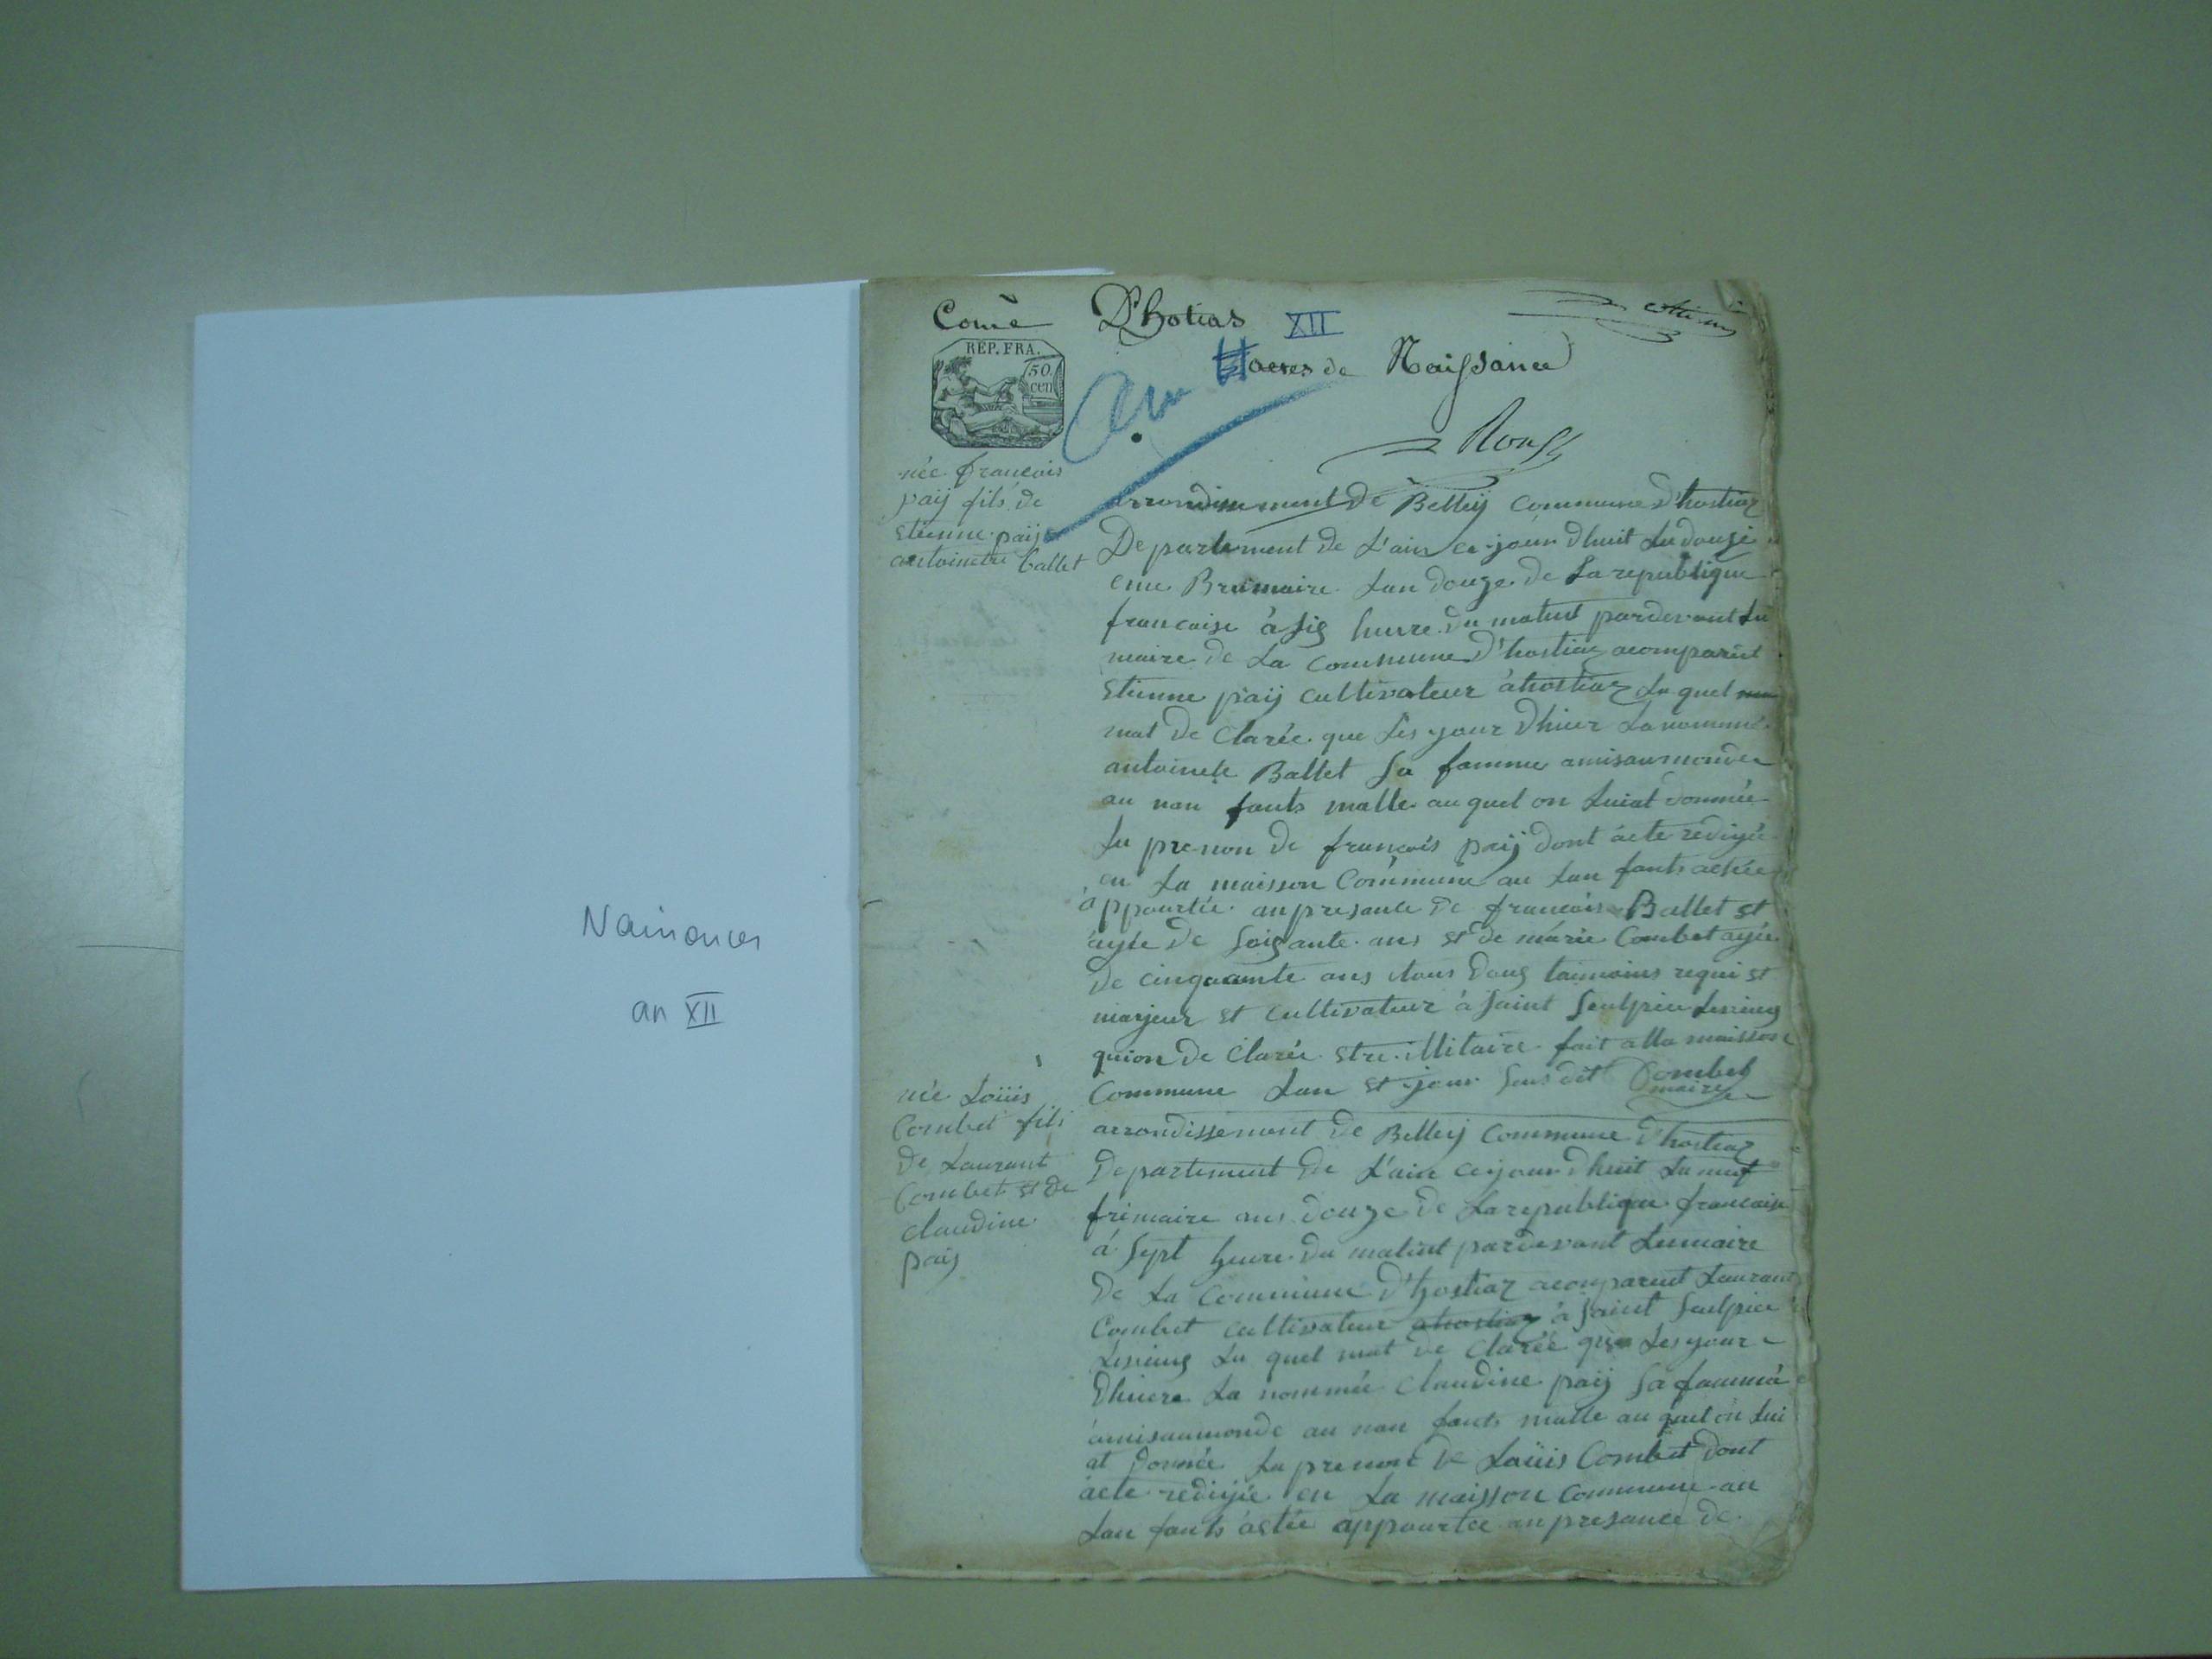 Naissances
an XII
Com.è D'hotias XII
actes de Naissance
an
REP. FRA.
50.
cen
née francois
paÿ fils de
Etienne paÿ
antoinette ballet
arrondissement de Belleÿ Commune d'hostiaz
Departement de L'ain ce jour dhuit Le douzi
eme Brumaire Lan douze de La republique
francaise à sis heure du matint pardevant Le
maire de La Commune d'hostiaz acomparut
Etienne paÿ cultivateur àhostiaz Le quel
mat de clarée que Les jour dhier La nommé
antoinete Ballet Sa famme amisaumonde
au nan fants malle au quel on Luiat donnée
Le prenon de francois paÿ dont acte redigée
en La maisson Commune au Lan fants
appourtée anpresance de francois Ballet et
agée de Soisante ans et de marie Combet agée
de cinquante ans tous dous taimoins requi et
majeur et cultivateur à Saint Seulpice Levieus
quion de clarée etre illitaire fait alla maisson
Commune Lan et jour Sus dit Combet
maire
née Loüis
Combet fils
de Laurant
Combet et de
claudine
paÿ
arrondissement de Belleÿ Commune d'hostiaz
Departement de L'ain ce jour dhuit Le neuf
frimaire ans douze de La republique francaise
à Sept heure du matint pardevant Lemaire
de La Commune d'hostiaz acomparut Laurant
Combet cultivateur ahostiaz à Saint Seulpice
Levieus Le quel mat de clarée que Les jour
dhiere La nommée claudine paÿ Sa famme
amisaumonde au nan fants malle au quel on Lui
at donnée Le prenont de Loüis Combet dont
acte redigée en La maisson Commune au
Lan fants actée appourtée anpresance de